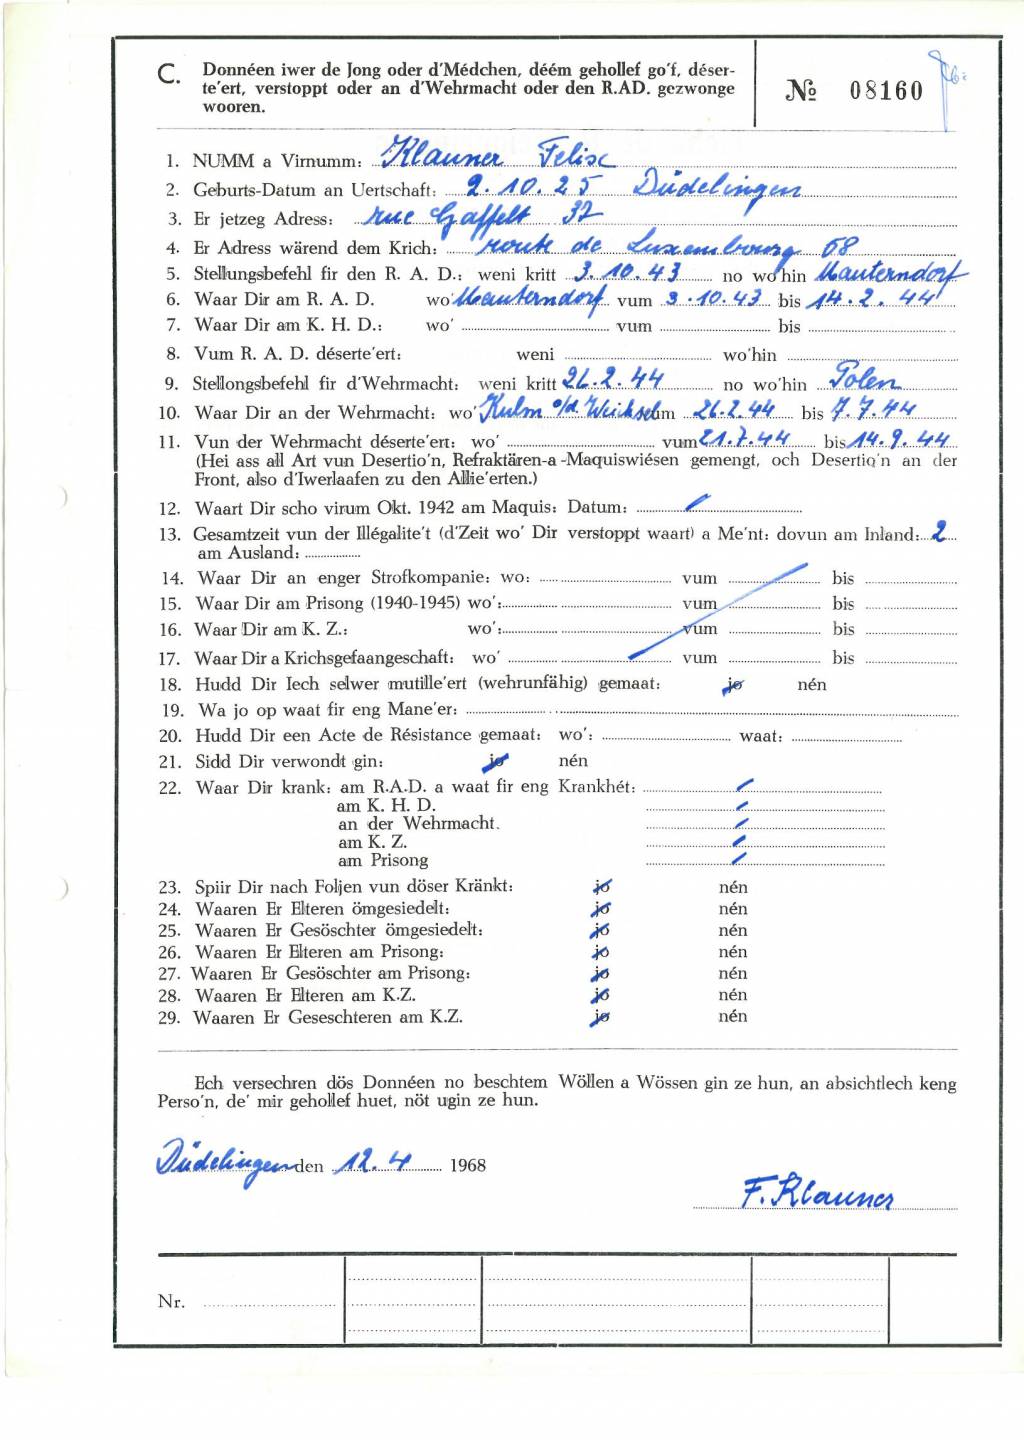 C. Donnéen iwer de Jong oder d'Médchen, déém gehollef go'f, déser-
te'ert, verstoppt oder an d'Wehrmacht oder den R.AD. gezwonge
wooren.
№ 08160
1. NUMM a Virnumm: Klauner Felix
2. Geburts-Datum an Uertschaft: 2.10.25 Düdelingen
3. Er jetzeg Adress: rue Gaffelt 37
4. Er Adress wärend dem Krich: route de Luxembourg 68
5. Stellungsbefehl fir den R. A. D.: weni kritt 3.10.43 no wo'hin Mauterndorf
6. Waar Dir am R. A. D. wo' Mauterndorf vum 3.10.43 bis 14.2.44
7. Waar Dir am K. H. D.: wo' vum bis
8. Vum R. A. D. déserte'ert: weni wo'hin
9. Stellongsbefehl fir d'Wehrmacht: weni kritt 26.2.44 no wo'hin Polen
10. Waar Dir an der Wehrmacht: wo' Kulm o/d. Weichsel um 26.2.44 bis 7.7.44
11. Vun der Wehrmacht déserte'ert: wo' vum 21.7.44 bis 14.9.44
(Hei ass all Art vun Desertio'n, Refraktären-a -Maquiswiésen gemengt, och Desertio'n an der
Front, also d'Iwerlaafen zu den Allie'erten.)
12. Waart Dir scho virum Okt. 1942 am Maquis: Datum:
13. Gesamtzeit vun der Illégalite't (d'Zeit wo' Dir verstoppt waart) a Me'nt: dovun am Inland: 2
am Ausland:
14. Waar Dir an enger Strofkompanie: wo: vum bis
15. Waar Dir am Prisong (1940-1945) wo': vum bis
16. Waar Dir am K. Z.: wo': vum bis
17. Waar Dir a Krichsgefaangeschaft: wo' vum bis
18. Hudd Dir Iech selwer mutille'ert (wehrunfähig) gemaat: jo nén
19. Wa jo op waat fir eng Mane'er:
20. Hudd Dir een Acte de Résistance gemaat: wo': waat:
21. Sidd Dir verwondt gin: jo nén
22. Waar Dir krank: am R.A.D. a waat fir eng Krankhét:
am K. H. D.
an der Wehrmacht.
am K. Z.
am Prisong
23. Spiir Dir nach Foljen vun döser Kränkt: jo nén
24. Waaren Er Elteren ömgesiedelt: jo nén
25. Waaren Er Gesöschter ömgesiedelt: jo nén
26. Waaren Er Elteren am Prisong: jo nén
27. Waaren Er Gesöschter am Prisong: jo nén
28. Waaren Er Elteren am K.Z. jo nén
29. Waaren Er Geseschteren am K.Z. jo nén
Ech versechren dös Donnéen no beschtem Wöllen a Wössen gin ze hun, an absichtlech keng
Perso'n, de' mir gehollef huet, nöt ugin ze hun.
Düdelingen den 12.4 1968
F. Klauner
Nr.